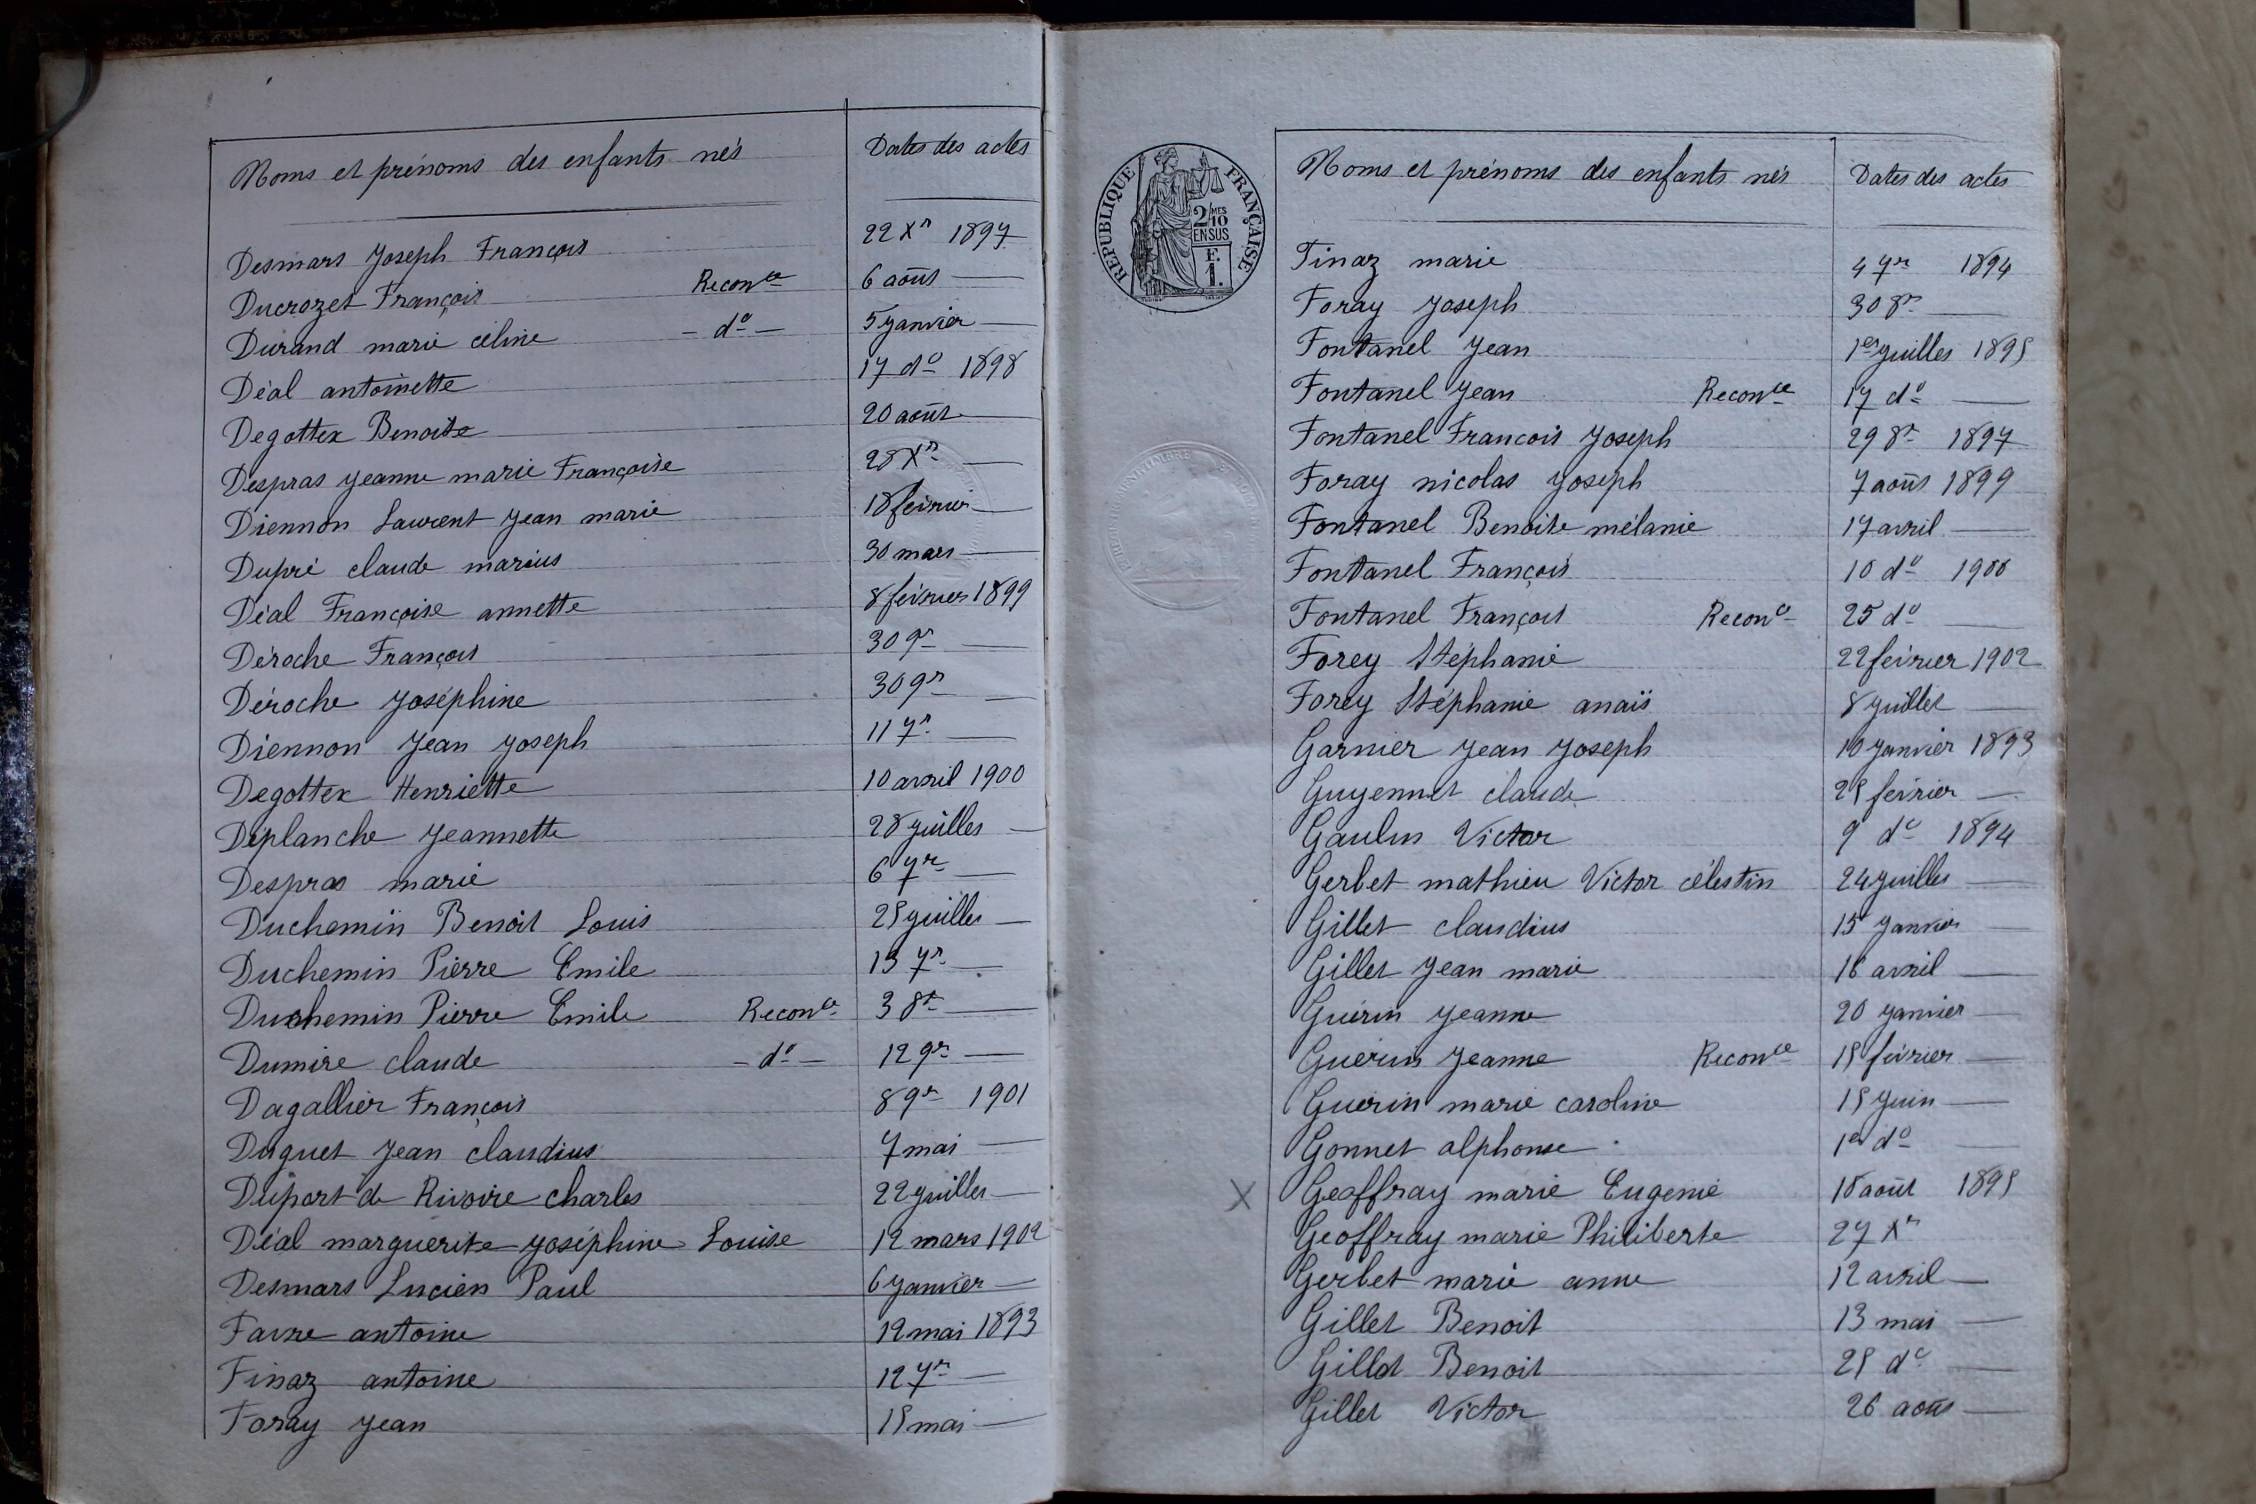 Noms et prénoms des enfants nés Dates des actes
Desmars Joseph François 22 Xr 1897
Ducrozet François Reconce 6 août —
Durand marie céline - do - 5 Janvier —
Déal antoinette 17 do 1898
Degottex Benoite 20 août —
Despras Jeanne marie Françoise 28 Xr —
Diennon Laurent Jean marie 18 février —
Dupré claude marius 30 mars —
Déal Françoise annette 8 février 1899
Déroche François 30 9r —
Déroche Joséphine 30 9r —
Diennon Jean Joseph 11 7r —
Degottex Henriette 10 avril 1900
Déplanche Jeannette 28 Juillet —
Despras marie 6 7re —
Duchemin Benoit Louis 25 Juillet —
Duchemin Pierre Emile 13 7r —
Duchemin Pierre Emile Reconce 3 8re —
Dumire claude - do - 12 9re —
Dagallier François 8 9re 1901
Duguet Jean claudius 7 mai —
Duport de Rivoire charles 22 Juillet —
Déal marguerite Joséphine Louise 12 mars 1902
Desmars Lucien Paul 6 Janvier —
Favre antoine 12 mai 1893
Finaz antoine 12 7re —
Foray Jean 15 mai —
RÉPUBLIQUE FRANÇAISE
2/10MES
EN SUS
F.
1.
Noms et prénoms des enfants nés Dates des actes
Finaz marie 4 7re 1894
Foray Joseph 30 8re —
Fontanel Jean 1er Juillet 1895
Fontanel Jean Reconce 17 do —
Fontanel Francois Joseph 29 8re 1897
Foray nicolas Joseph 7 août 1899
Fontanel Benoite mélanie 17 avril —
Fontanel François 10 do 1900
Fontanel François Reconce 25 do —
Forey Stéphanie 22 février 1902
Forey Stéphanie anaïs 8 Juillet —
Garnier Jean Joseph 10 Janvier 1893
Guyennet claude 25 février —
Gaulin Victor 9 do 1894
Gerbet mathieu Victor célestin 24 Juillet —
Gillet claudius 15 Janvier —
Gillet Jean marie 16 avril —
Guérin Jeanne 20 Janvier —
Guérin Jeanne Reconce 15 février —
Guerin marie caroline 15 Juin —
Gonnet alphonse 1er do —
X Geoffray marie Eugenie 18 août 1895
Geoffray marie Philiberte 27 Xr
Gerbet marie anne 12 avril —
Gillet Benoit 13 mai —
Gillet Benoit 25 do —
Gillet Victor 26 août —